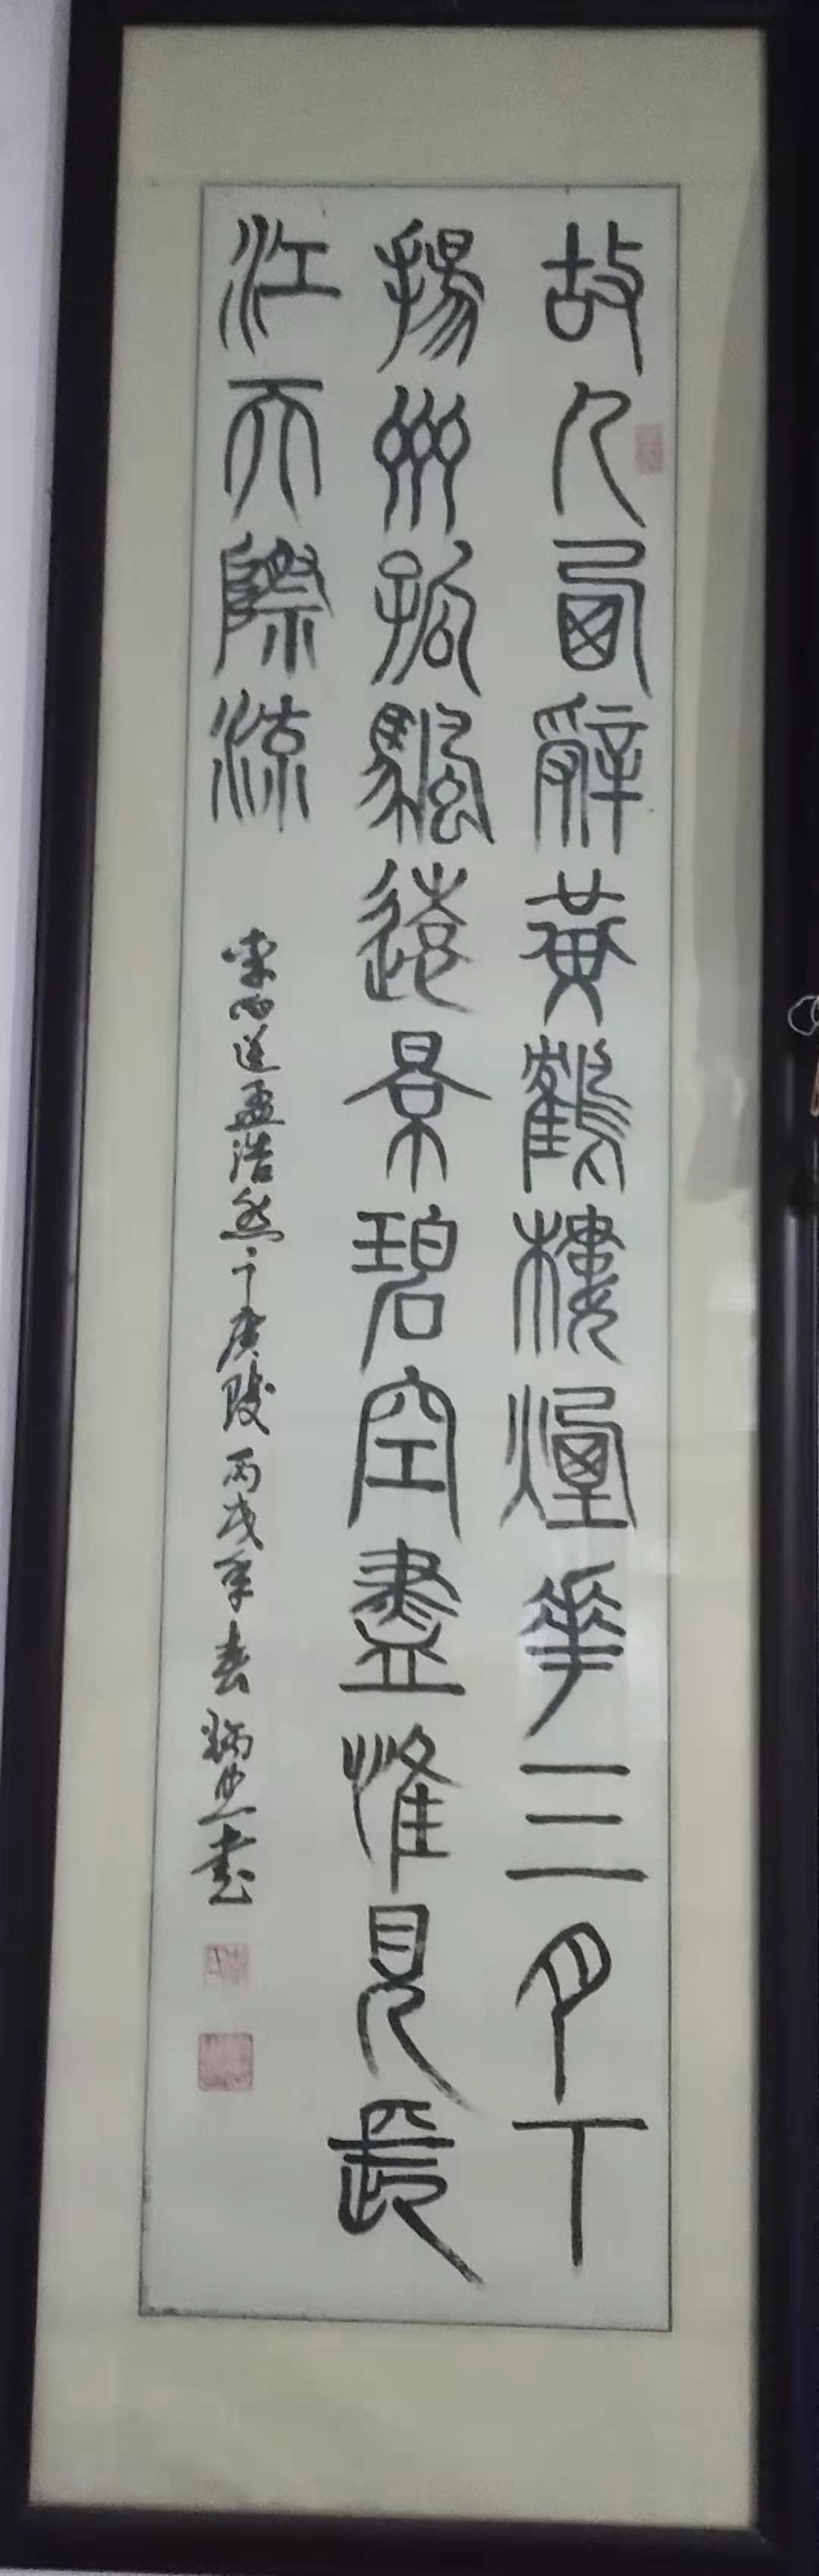 故人西辭黃鶴樓煙華三月下
揚州孤颿遠景碧空盡惟見長
江天際流
李白送孟浩然之廣陵 丙戌年春 書